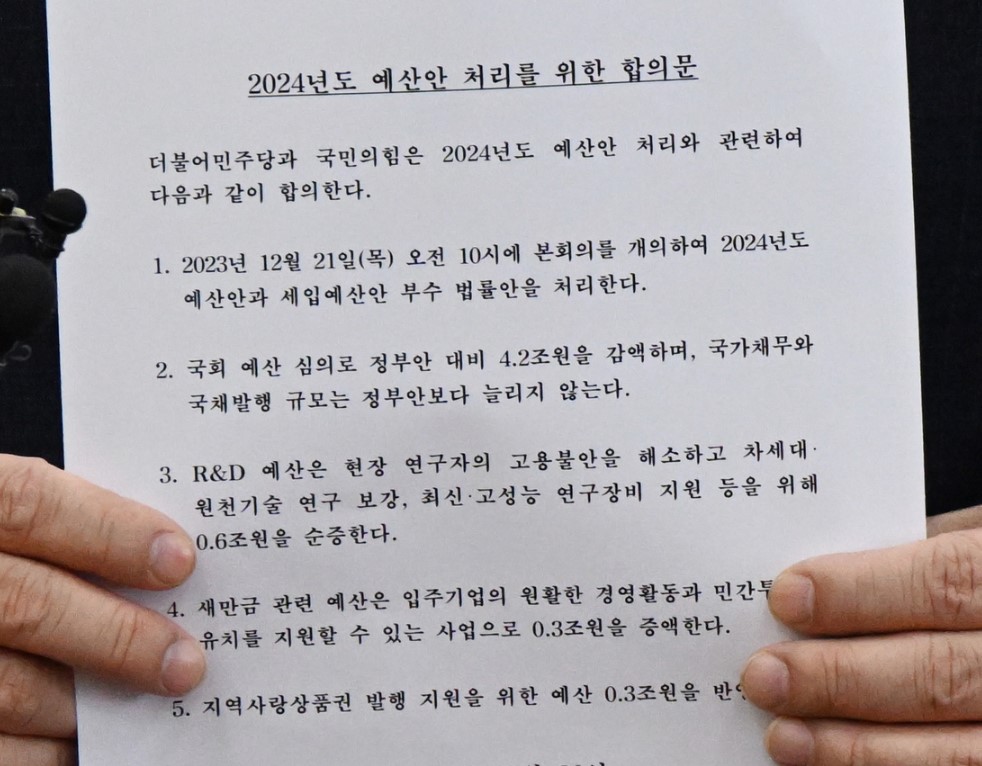 2024년도 예산안 처리를 위한 합의문
더불어민주당과 국민의힘은 2024년도 예산안 처리와 관련하여
다음과 같이 합의한다.
1. 2023년 12월 21일(목) 오전 10시에 본회의를 개의하여 2024년도
예산안과 세입예산안 부수 법률안을 처리한다.
2. 국회 예산 심의로 정부안 대비 4.2조원을 감액하며, 국가채무와
국채발행 규모는 정부안보다 늘리지 않는다.
3. R&D 예산은 현장 연구자의 고용불안을 해소하고 차세대·
원천기술 연구 보강, 최신·고성능 연구장비 지원 등을 위해
0.6조원을 순증한다.
4. 새만금 관련 예산은 입주기업의 원활한 경영활동과
유치를 지원할 수 있는 사업으로 0.3조원을 증액한다.
5. 지역사랑상품권 발행 지원을 위한 예산 0.3조원을